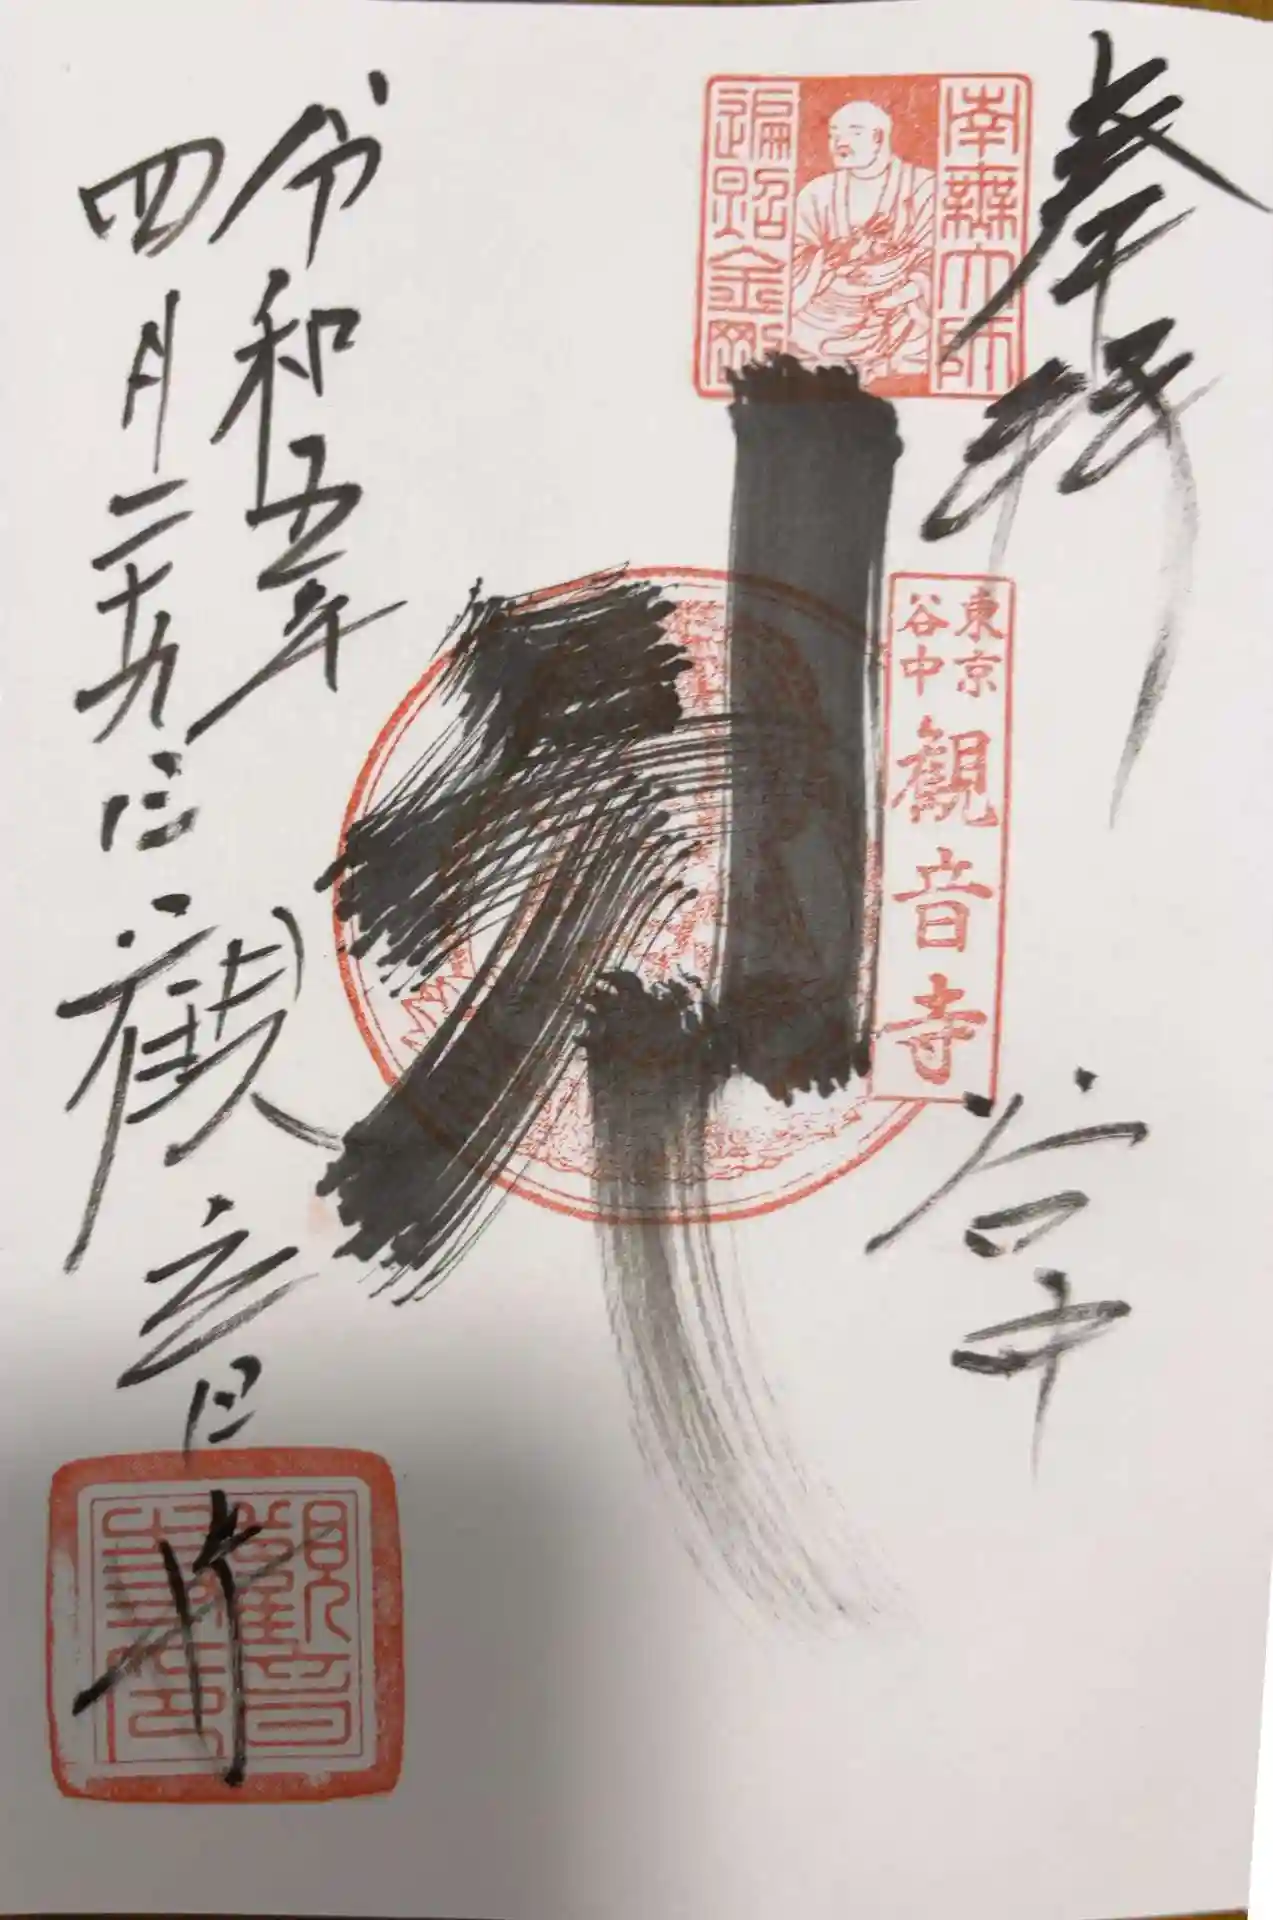 奉拝
谷中
南無大師
遍照金剛
東京
谷中
観音寺
令和五年
四月二十九日
観音寺
観音
寺印